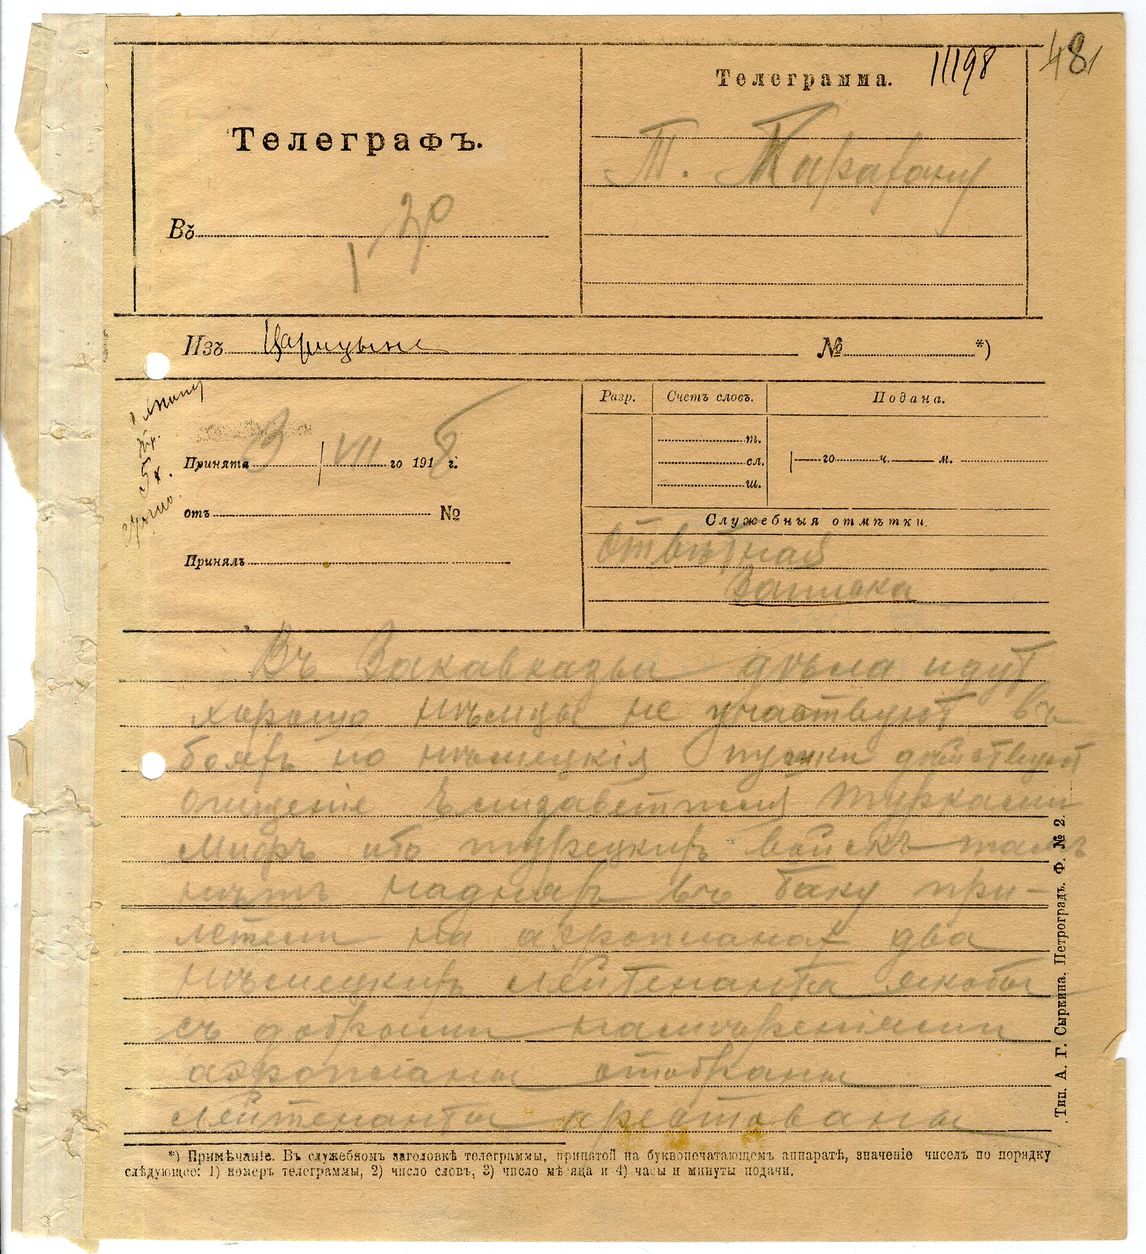 48
11198
Телеграмма.
Т. Карахану
Телеграфъ.
Въ
1 20
Изъ Царицына № *)
Разр. Счетъ словъ. Подана.
Принята 19/VII го 1918 г.
т.
сл. го ч. м.
ш.
отъ №
Служебныя отмѣтки.
Принялъ
Отвѣтная
Записка
срочно.
Въ Закавказьи дѣла идут
хорошо нѣмцы не участвуют въ
боях но нѣмецкія пушки действуют
очищеніе Елизаветполя турками
миф ибо турецких войскъ там
нѣтъ на днях въ Баку при-
летели на аэропланах два
нѣмецких лейтенанта якобы
съ добрыми намѣреніями
аэропланы отобраны
лейтенанты арестованы
*) Примѣчаніе. Въ служебномъ заголовкѣ телеграммы, принятой на буквопечатающемъ аппаратѣ, значеніе чиселъ по порядку
слѣдующее: 1) номеръ телеграммы, 2) число словъ, 3) число мѣсяца и 4) часы и минуты подачи.
Тип. А. Г. Сыркина. Петроградъ. Ф. № 2.